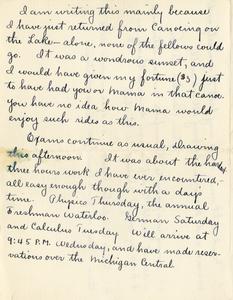 I am writing this mainly because
I have just returned from Canoeing on
the Lake - alone, none of the fellows could
go. It was a wondrous sunset, and
I would have given my fortune ($3) just
to have had you or Mama in that canoe.
You have no idea how Mama would
enjoy such rides as this.
Exams continue as usual, drawing
this afternoon. It was about the hardest
three hours work I have ever encountered,-
all easy enough though with a day's
time. Physics Thursday, the annual
Freshman Waterloo. German Saturday
and Calculus Tuesday. Will arrive at
9:45 P.M. Wednesday, and have made reser-
vations over the Michigan Central